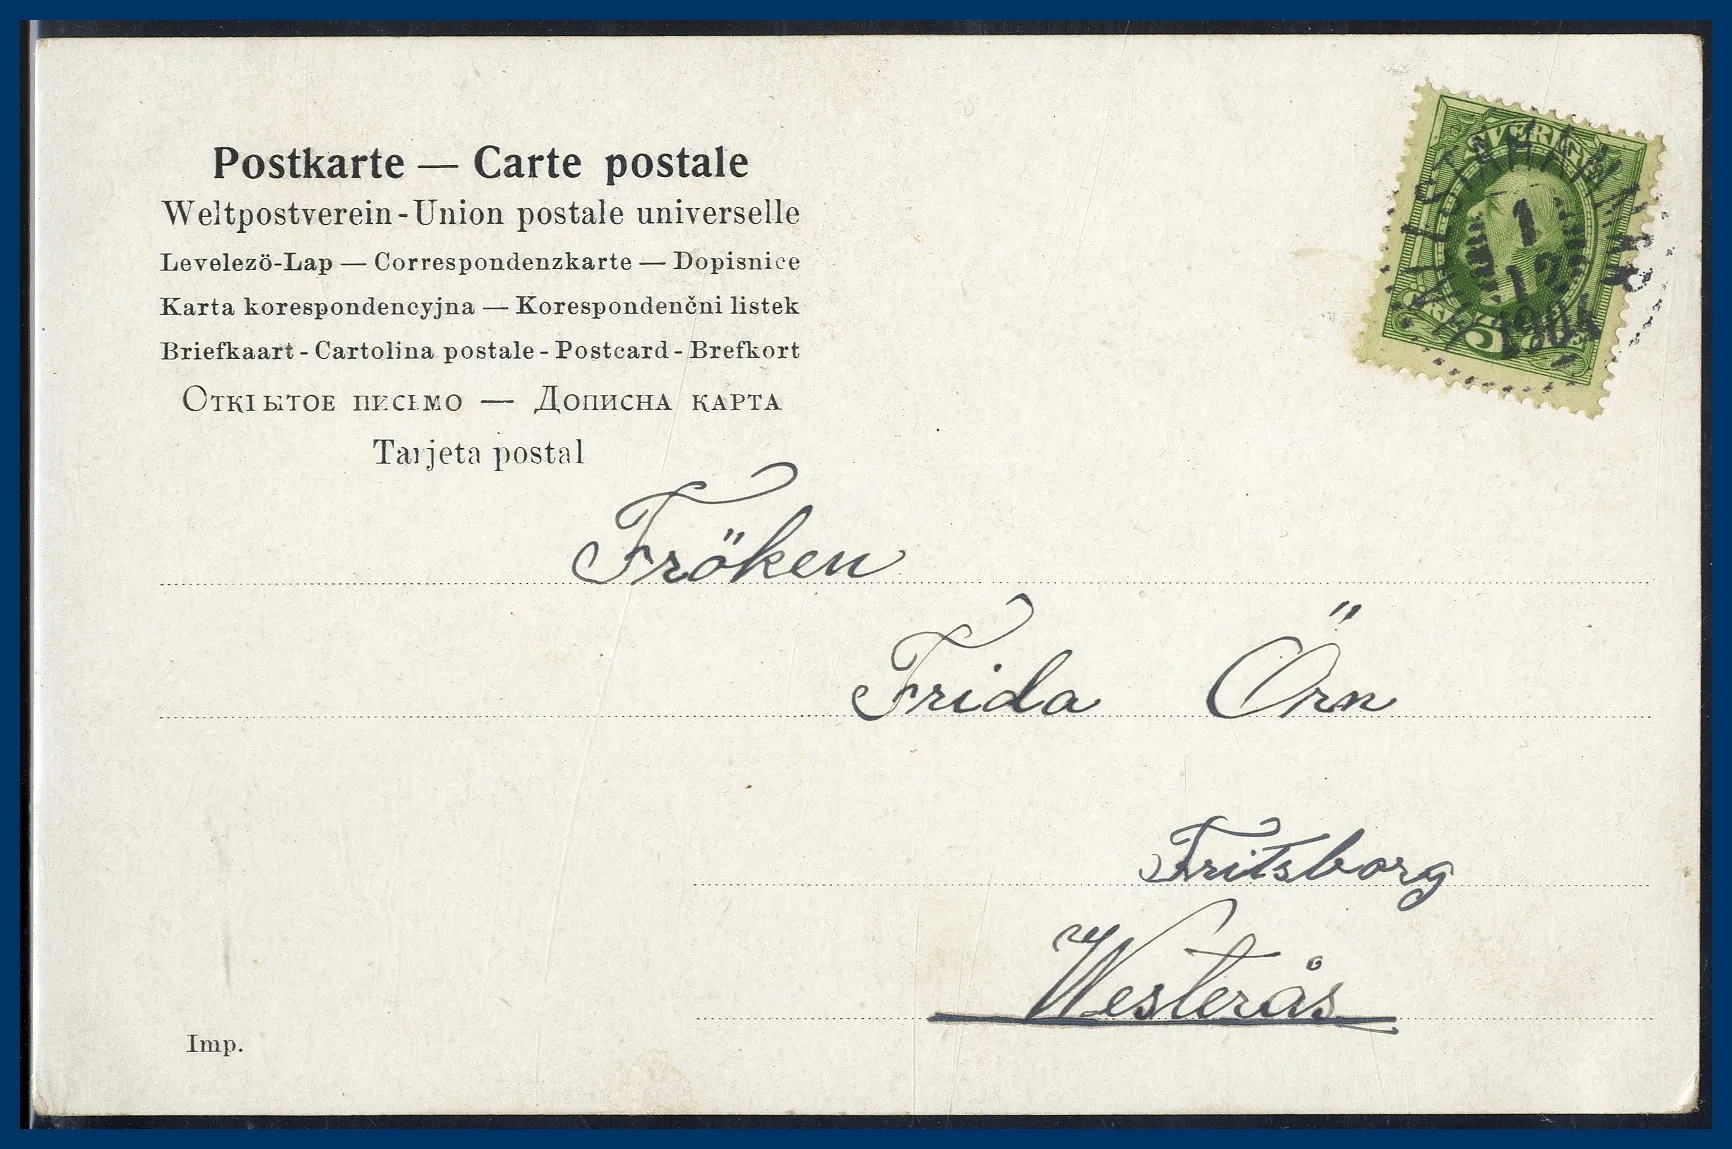 Postkarte — Carte postale
Weltpostverein - Union postale universelle
Levelezö-Lap — Correspondenzkarte — Dopisnice
Karta korespondencyjna — Korespondenčni listek
Briefkaart - Cartolina postale - Postcard - Brefkort
Открытое письмо — Дописна карта
Tarjeta postal
SVERIGE
1
12
1904
5
Fröken
Frida Örn
Fritsborg
Westerås
Imp.